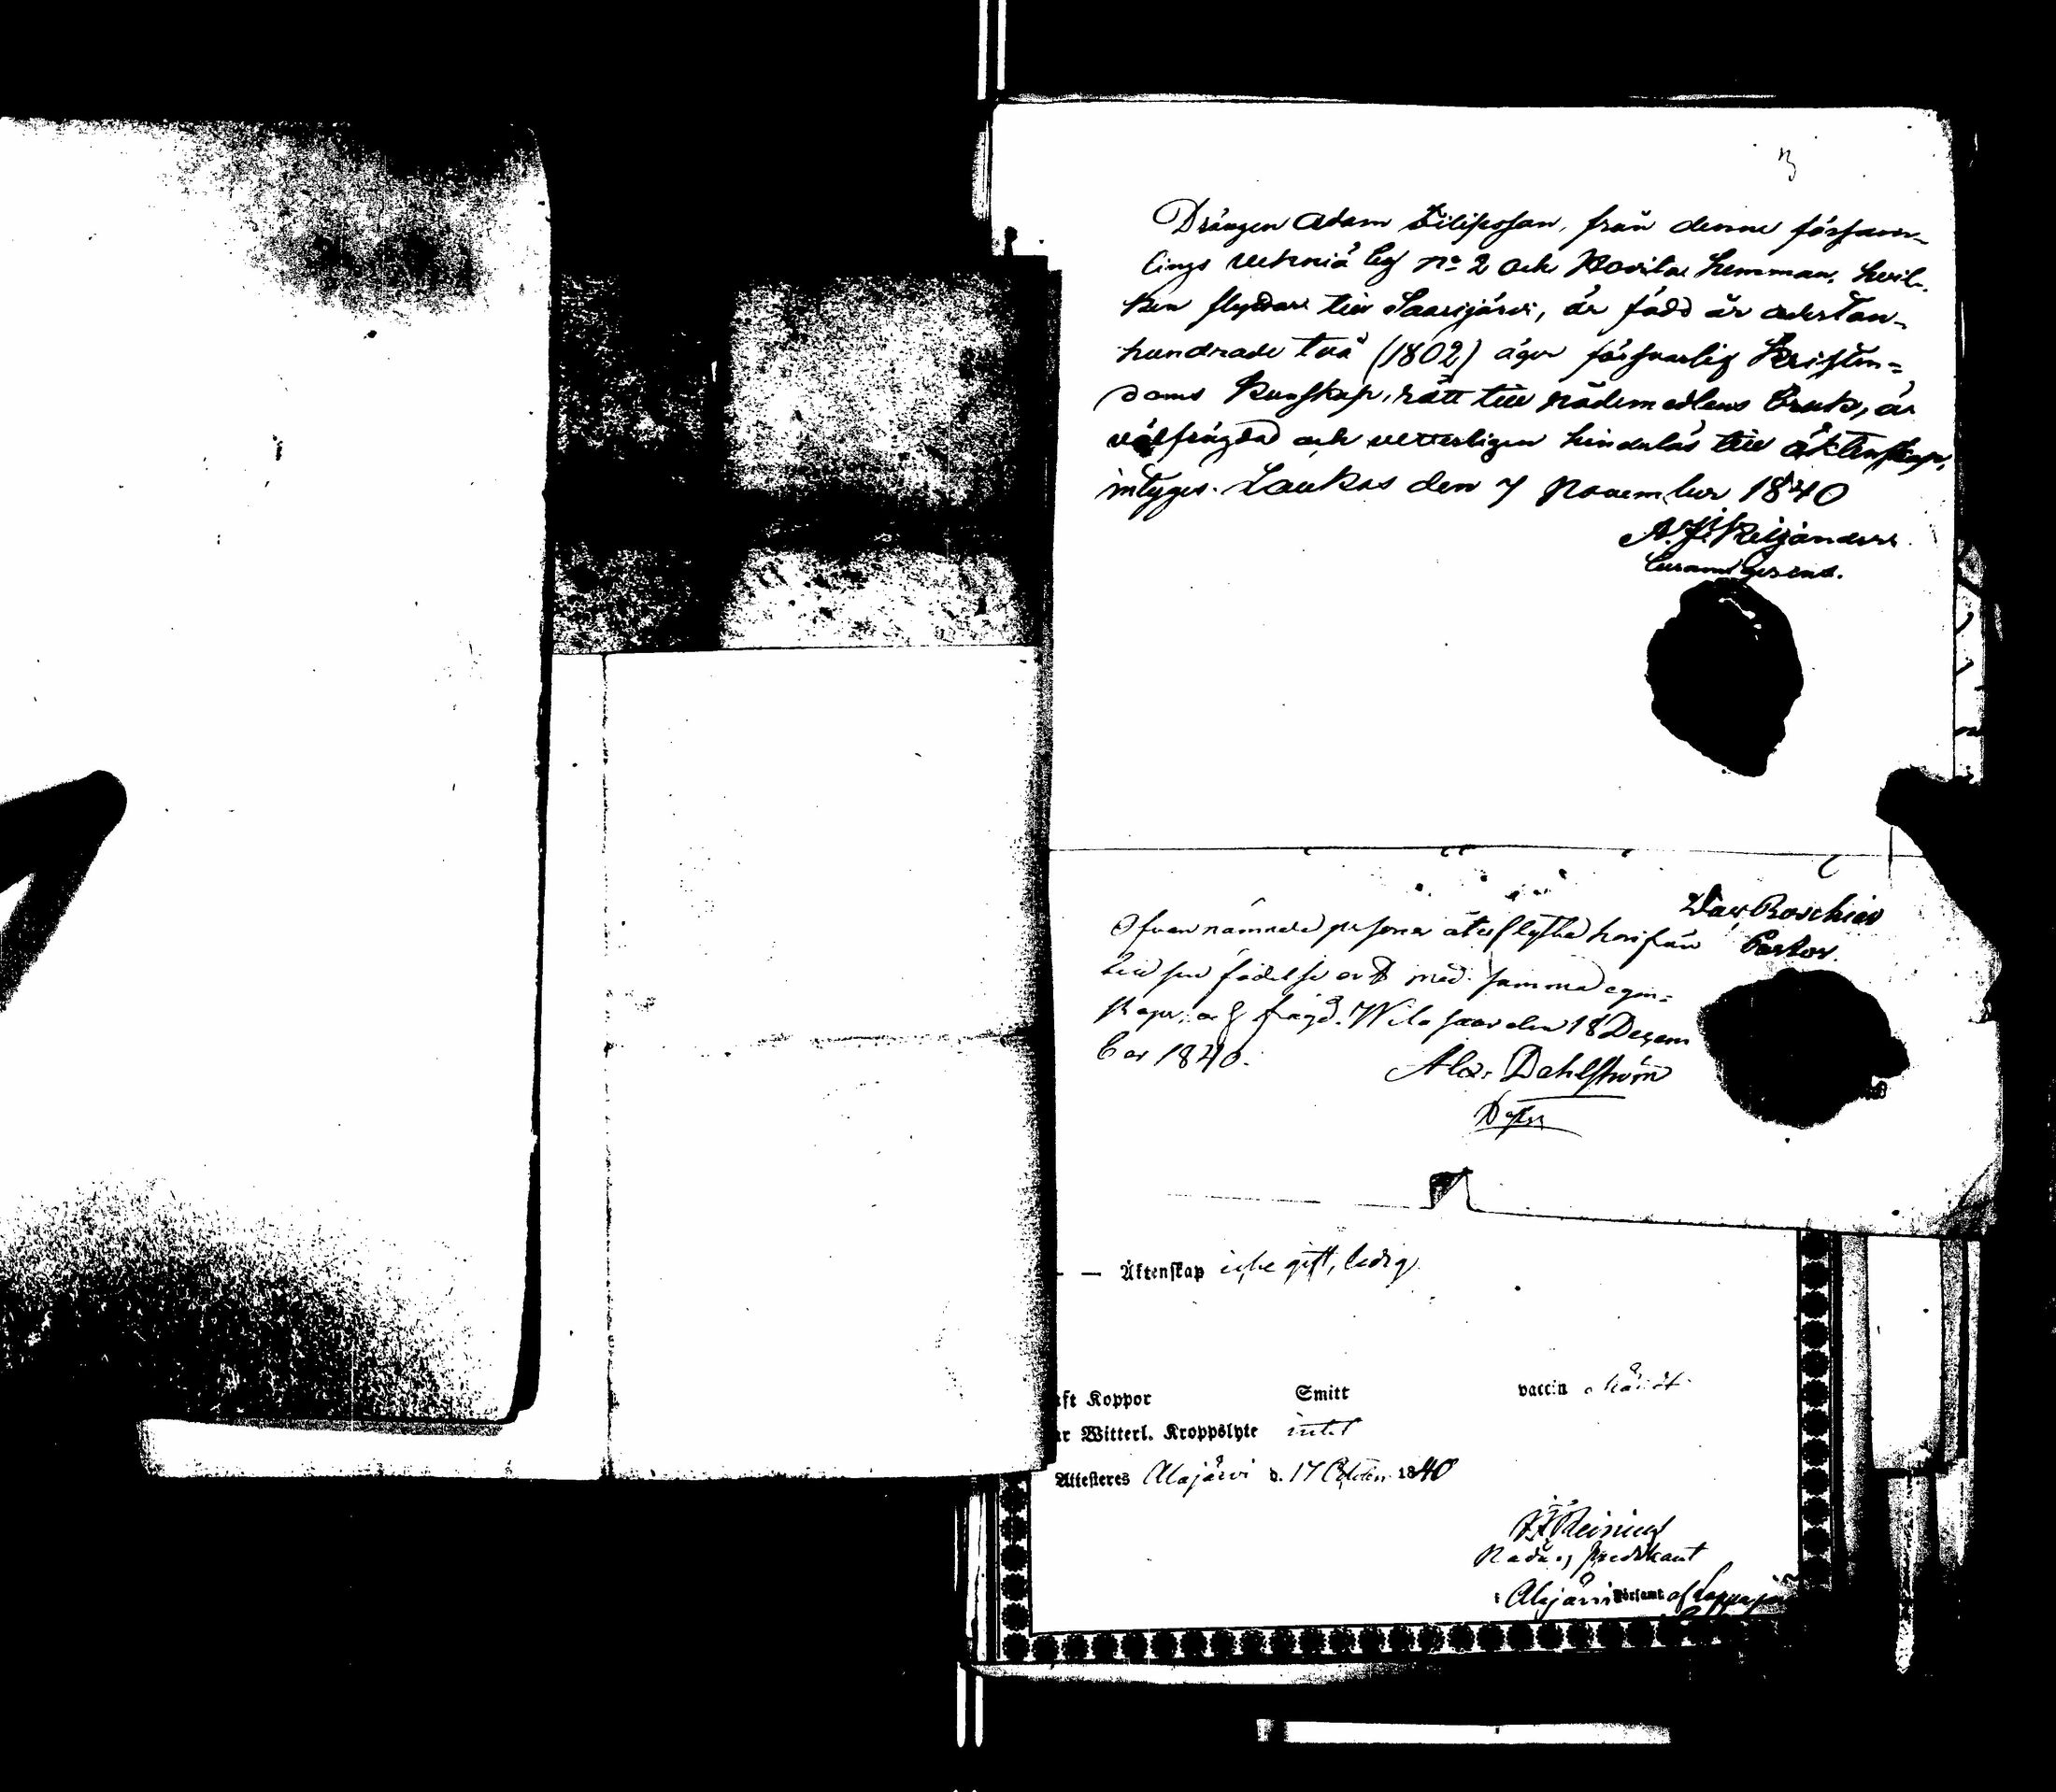 3
Drängen Adam Filipsson, från denne försam-
lings Vehniä by no 2 och Hovila hemman, hvil-
ken flyttar till Saarijärvi, är född år aderton-
hundrade två (1802) äger försvarlig Kristen-
doms Kunskap, rätt till nådemedlens bruk, är
välfrägdad och vetterligen hinderlös till äktenskap,
intygar. Laukas den 7 November 1840
Kiljander
Dav. Roschier
Pastor.
Ofvannämnde person återflyttad härifrån
till sin födelse ort med samma egen-
skaper och frägd. Wiitasaari den 18 Decem
ber 1840.
Alex. Dahlström
— Äktenskap icke gift, ledig
ft Koppor Smitt vaccin
ar Witterl. Kroppslyte intet
Attesteres Alajärvi d. 17 October 1840
Reinius
predikant
i Alajärvi Församl. af Lappajärvi